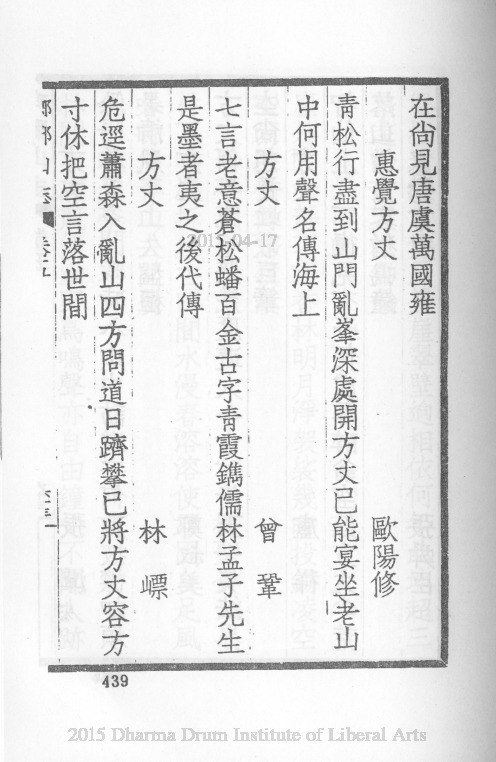 在尙見唐虞萬國雍
惠覺方丈 歐陽修
青松行盡到山門亂峯深處開方丈已能宴坐老山
中何用聲名傳海上
方丈 曾鞏
七言老意蒼松蟠百金古字靑霞鐫儒林孟子先生
是墨者夷之後代傳
方丈 林㟽
危逕蕭森入亂山四方問道日躋攀已將方丈容方
寸休把空言落世間
山志 卷五
439
2011-04-17
2015 Dharma Drum Institute of Liberal Arts